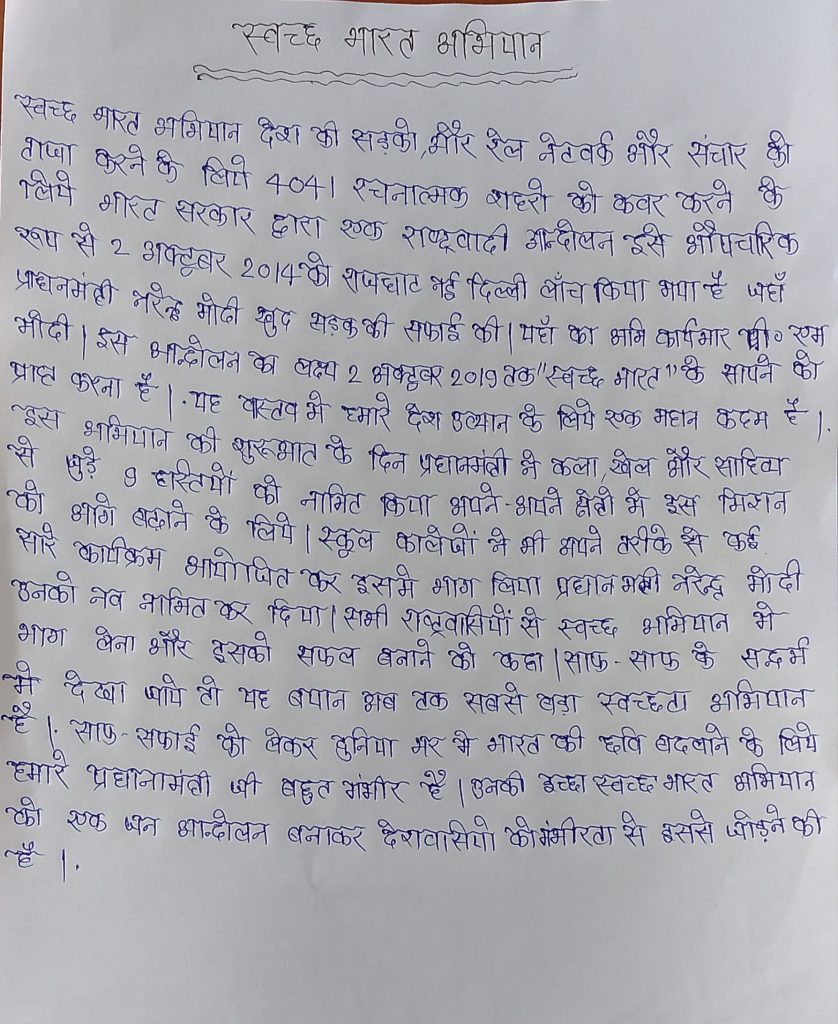 स्वच्छ भारत अभियान
स्वच्छ भारत अभियान देश की सड़को, और रेल नेटवर्क और संचार की
ताजा करने के लिये 4041 रचनात्मक शहरो को कवर करने के
लिये भारत सरकार द्वारा एक राष्ट्रवादी आन्दोलन इसे औपचारिक
रूप से 2 अक्टूबर 2014 को राजघाट नई दिल्ली लाँच किया गया है जहाँ
प्रधानमंत्री नरेन्द्र मोदी खुद सड़क की सफाई की। यहाँ का भामि कार्यभार पी० एम
मोदी। इस आन्दोलन का लक्ष्य 2 अक्टूबर 2019 तक "स्वच्छ भारत" के सापने को
प्राप्त करना है।. यह वास्तव मे हमारे देश उत्थान के लिये एक महान कदम है।.
इस अभियान की शुरुआत के दिन प्रधानमंत्री ने कला, खेल और साहित्य
से जुड़े 9 हस्तियों को नामित किया अपने-अपने क्षेत्रो में इस मिशन
को आगे बढ़ाने के लिये। स्कूल कालेजों ने भी अपने तरीके से कई
सारे कार्यक्रम आयोजित कर इसमे भाग लिया प्रधान मंत्री नरेन्द्र मोदी
उनको नव नामित कर दिया। सभी राष्ट्रवासियों से स्वच्छ अभियान मे
भाग लेना और इसको सफल बनाने को कहा। साफ-साफ के सन्दर्भ
मे देखा जाये तो यह बयान अब तक सबसे बड़ा स्वच्छता अभियान
है।. साफ-सफाई को लेकर दुनिया भर मे भारत की छवि बदलाने के लिये
हमारे प्रधानामंत्री जी बहुत गंभीर है। उनकी इच्छा स्वच्छ भारत अभियान
को एक जन आन्दोलन बनाकर देशवासियो को गंभीरता से इससे जोड़ने की
है।.